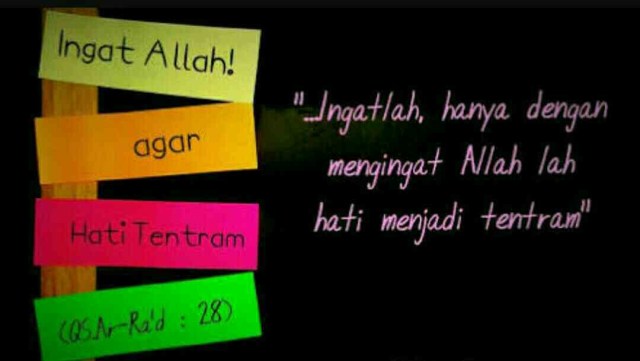 Ingat Allah!
agar
Hati Tentram
(QS.Ar-Ra'd : 28)
"...Ingatlah, hanya dengan
mengingat Allah lah
hati menjadi tentram"